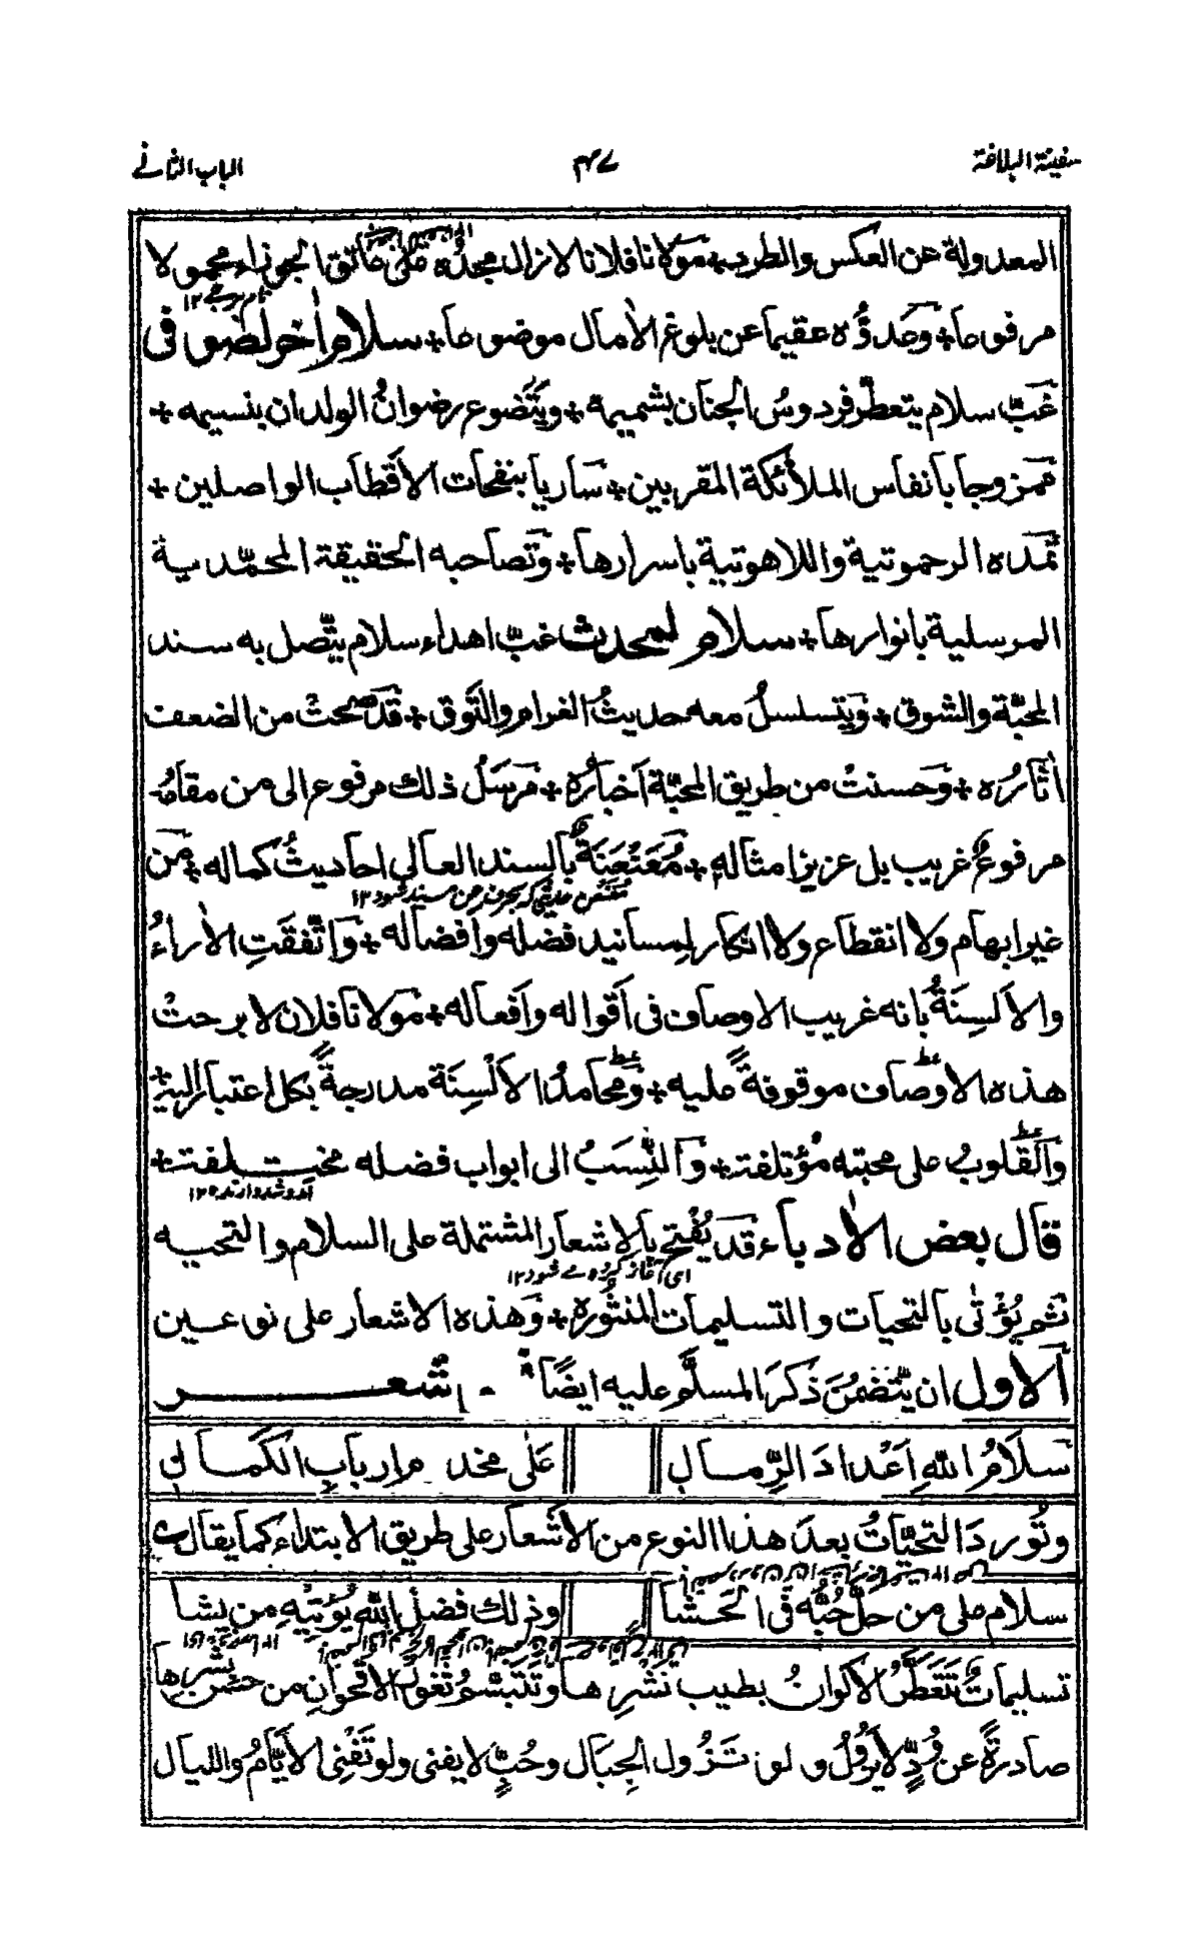 سفينة البلاغة
٤٧
الباب الثاني
المعدولة عن العكس والطرد + مولانا فلانا لا زال مجدُّه على عاتق الجوزاء محمولا
مرفوعا + وعدوُّه عقيما عن بلوغ الاٰمال موضوعا + سلام اٰخر لصوفى
غبّ سلام يتعطّر فردوسُ الجنان بشميمه + ويتَضوع رضوانُ الولدان بنسيمه +
ممزوجا بانفاس الملائكة المقربين + ساريا بنفحات الاقطاب الواصلين +
تمّده الرحموتية واللاهوتية باسرارها + وتصاحبه الحقيقة المحمّدية
المرسلية بانوارها + سلام لمحدث غبّ اهداء سلام يتّصل به سند
المحبّة والشوق + ويتسلسلُ معه حديثُ الغرام والتَّوق + قد صحتْ من الضعف
اٰثارُه + وحسنتْ من طريق المحبّة اَخبارُه + مرسَلُ ذلك مرفوع الى من مقامُه
مرفوعٌ غريب بل عزيز امثاله + مُعَنْعَنَةٌ بالسند العالى احاديثُ كماله + من
معنعن حديثى كه بحرف عن مسند شود ١٢
غير ابهام ولا انقطاع ولا انكار لمسانيد فضله وافضاله + واتَّفقَتِ الاٰراءُ
والاَلسِنَةُ بانه غريب الاوصاف فى اَقواله وافعاله + مولانا فلان لا برحتْ
هذه الاوصاف موقوفةً عليه + ومحامدُ الاَلْسِنَة مدرجةً بكل اعتبار اليه +
والقلوبُ على محبته مؤتلفة + والنِّسَبُ الى ابواب فضله مختلفة +
اٰمد و شد دارنده ١٢
قال بعض الاُدباء قد يُفْتح بالاشعار المشتملة على السلام والتحيه
اى اٰغاز كرده مے شود ١٢
ثم يُؤْتٰى بالتحيات والتسليمات المنثورة + وهذه الاشعار على نوعين
الاول ان يتَضمَّنَ ذكرَ المسلَّم عليه ايضًا شعر
سَلَامُ اللهِ اَعْدادَ الرِّمال
عَلٰى مخدومِ اربابِ الكَمال
وتُورد التحيّاتُ بعدَ هذا النوع من الاشعار على طريق الابتداء كما يقال
سلام على من حلَّ حُبُّه فى الحَشا
وذلك فضلُ اللهِ يُؤتيْهِ من يشا
تسليماتٌ تَتَعَطَّرُ الاكوانُ بطيب نَشْرِها وتَتَبَسَّمُ ثغورُ الاقحوانِ من حسن بشرها
صادرةً عن وُدٍّ لا يزولُ ولو تَزُول الجِبَال وحُبٍّ لا يفنى ولو تَفْنى الاَيّامُ والليال